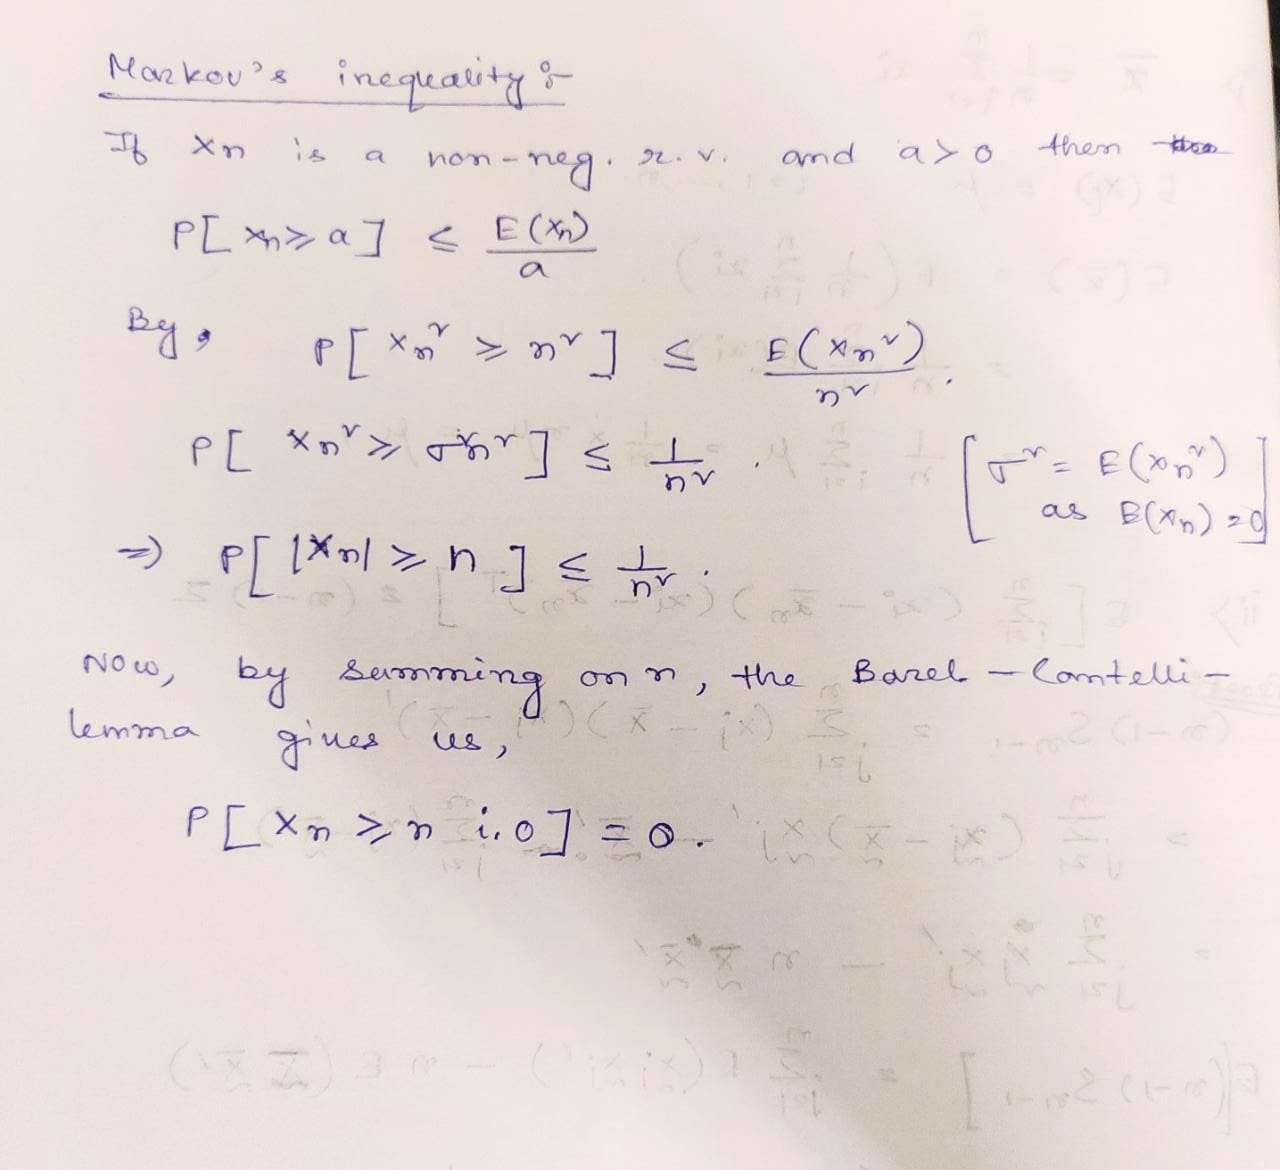 Markov's inequality :-
If Xn is a non-neg. r.v. and a > 0 then
P[Xn ≥ a] ≤ E(Xn)/a
By, P[Xn² ≥ n²] ≤ E(Xn²)/n².
P[Xn² ≥ σ²n²] ≤ 1/n². [σ² = E(Xn²)
as E(Xn) = 0]
⇒ P[|Xn| ≥ n] ≤ 1/n².
Now, by summing on n, the Borel-Cantelli-
lemma gives us,
P[Xn ≥ n i.o] = 0.